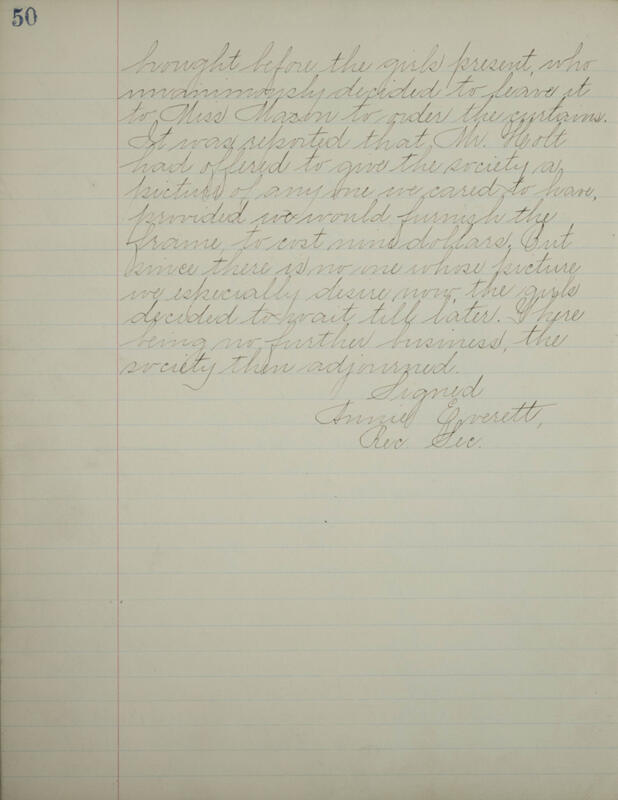 50
brought before the girls present, who
unanimously decided to leave it
to Miss Mason to order the curtains.
It was reported that Mr. Holt
had offered to give the society a
picture of any one we cared to have,
provided we would furnish the
frame, to cost nine dollars. But
since there is no one whose picture
we especially desire now, the girls
decided to wait till later. There
being no further business, the
society then adjourned.
Signed
Annie Everett,
Rec. Sec.